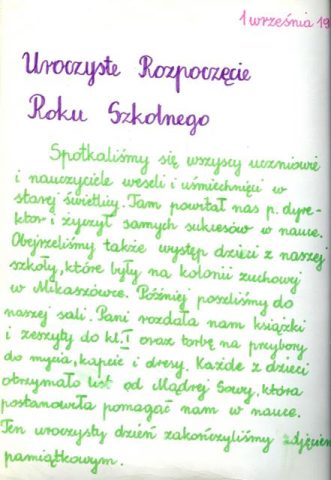 1 września 19
Uroczyste Rozpoczęcie
Roku Szkolnego
Spotkaliśmy się wszyscy uczniowie
i nauczyciele weseli i uśmiechnięci w
starej świetlicy. Tam powitał nas p. dyre-
ktor i życzył samych sukcesów w nauce.
Obejrzeliśmy także występ dzieci z naszej
szkoły, które były na kolonii zuchowej
w Mikaszówce. Później poszliśmy do
naszej sali. Pani rozdała nam książki
i zeszyty do kl. I oraz torbę na przybory
do mycia, kapcie i dresy. Każde z dzieci
otrzymało list od Mądrej Sowy, która
postanowiła pomagać nam w nauce.
Ten uroczysty dzień zakończyliśmy zdjęciem
pamiątkowym.